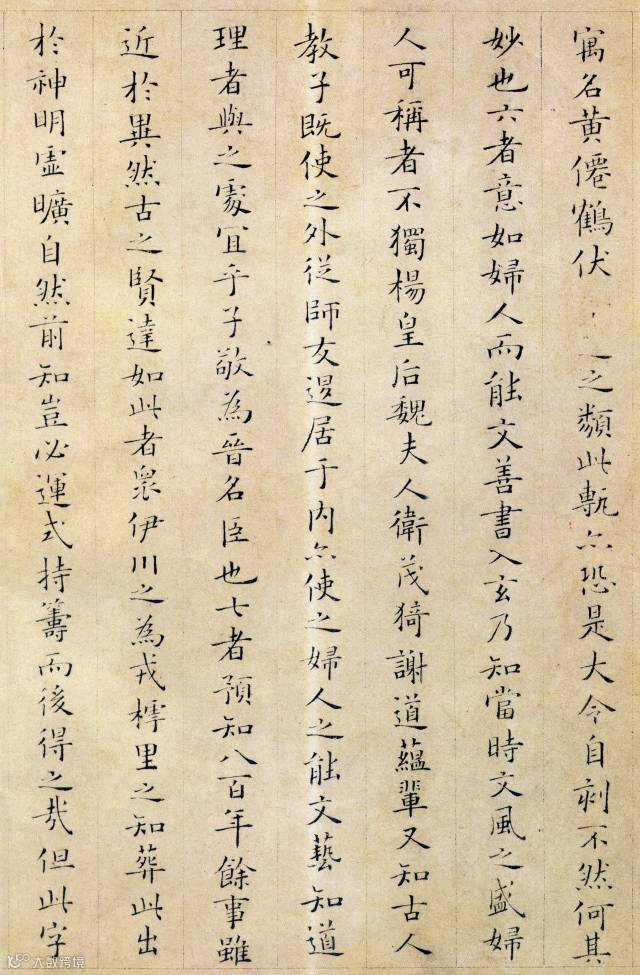 寓名黄僊鶴伏之之類此甎亦恐是大令自刻不然何其
妙也六者意如婦人而能文善書入玄乃知當時文風之盛婦
人可稱者不獨楊皇后魏夫人衛茂猗謝道蘊輩又知古人
教子既使之外従師友退居于内亦使之婦人之能文藝知道
理者與之處宜乎子敬為晉名臣也七者預知八百年餘事雖
近於異然古之賢達如此者眾伊川之為戎樗里之知葬此出
於神明虛曠自然前知豈必運式持籌而後得之哉但此字
大数跨境